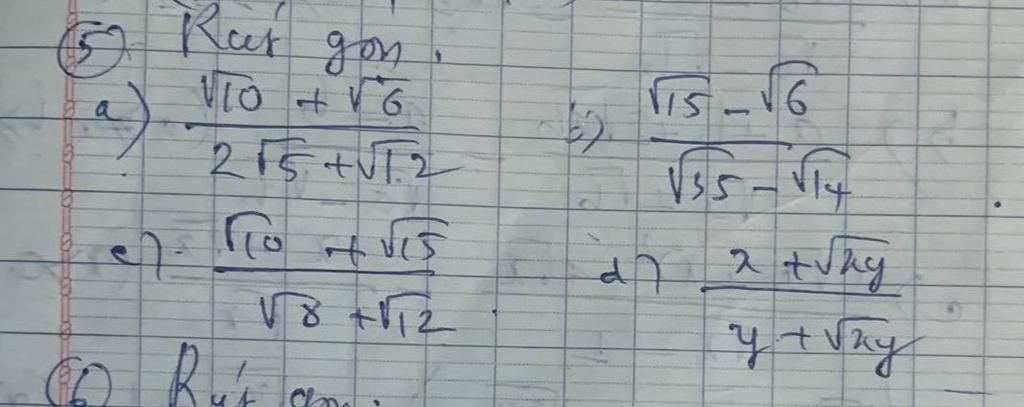 5) Rút gọn.
a) (√10 + √6) / (2√5 + √12)    b) (√15 - √6) / (√35 - √14)
c) (√10 + √15) / (√8 + √12)    d) (x + √xy) / (y + √xy)
6) Rút gọn.